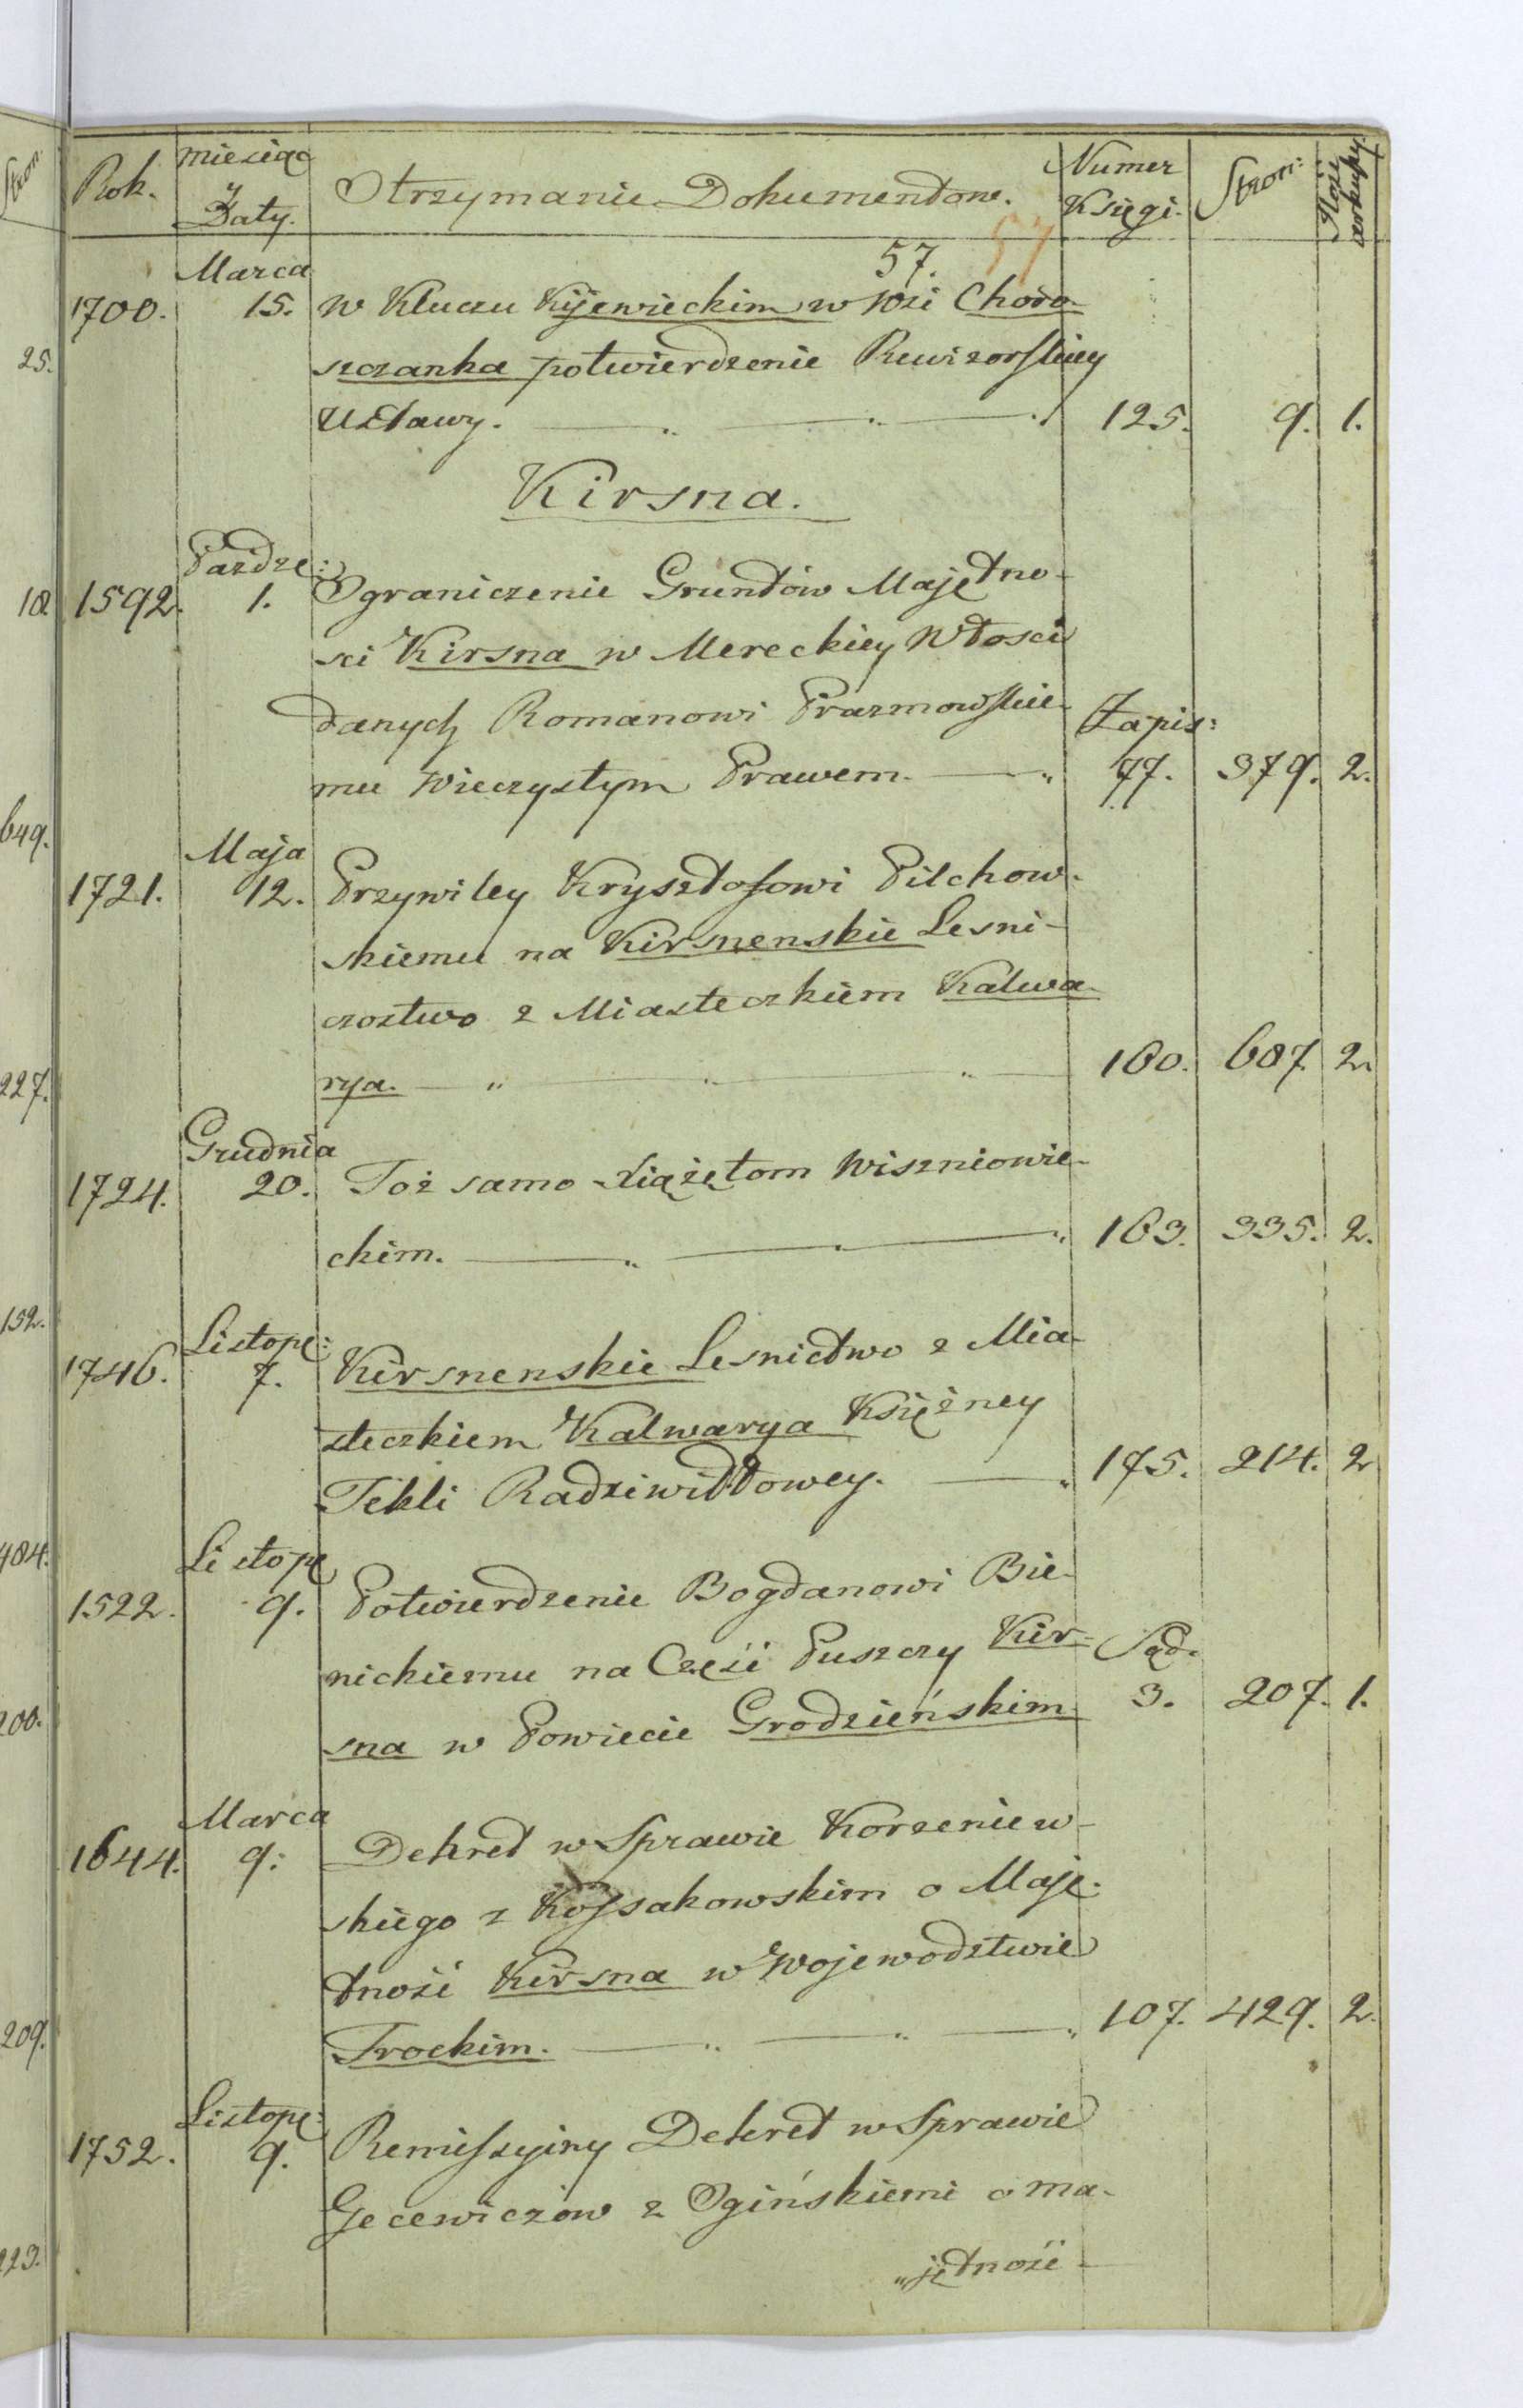 Rok. miesiąc y Daty. Otrzymanie Dokumentow. Numer Księgi. Stron:
57. 57
Marca
1700. 15. w Kluczu Kijewieckim w Wsi Choro-
szczanka potwierdzenie Rewizorskiey
Ustawy. 125. 9. 1.
Kirsna.
Paźdze:
1592. 1. Ograniczenie Gruntów Majętno-
sci Kirsna w Mereckiey Włosci
danych Romanowi Prazmowskie-
Zapis:
mu Wieczystym Prawem. 77. 379. 2.
Maja
1721. 12. Przywiley Krysztofowi Pilchow-
skiemu na Kirsnenskie Lesni-
czostwo z Miasteczkiem Kalwa-
rya. 160. 607. 2.
Grudnia
1724. 20. Toż samo Xiążętom Wiszniowie-
ckim. 163. 335. 2.
Listopę:
1746. 7. Kirsnenskie Lesnictwo z Mia-
steczkiem Kalwarya Księżney
Tekli Radziwiłłowey. 175. 214. 2
Listopę
1522. 9. Potwierdzenie Bogdanowi Bie-
nickiemu na Część Puszczy Kir-
Sąd.
sna w Powiecie Grodzieńskim 3. 207. 1.
Marca
1644. 9: Dekret w Sprawie Korzeniew-
skiego z Kossakowskim o Maję-
tność Kirsna w Wojewodztwie
Trockim. 107. 429. 2.
Listopę:
1752. 9. Remissyiny Dekret w Sprawie
Gecewiczow z Ogińskiemi o ma-
„jętność